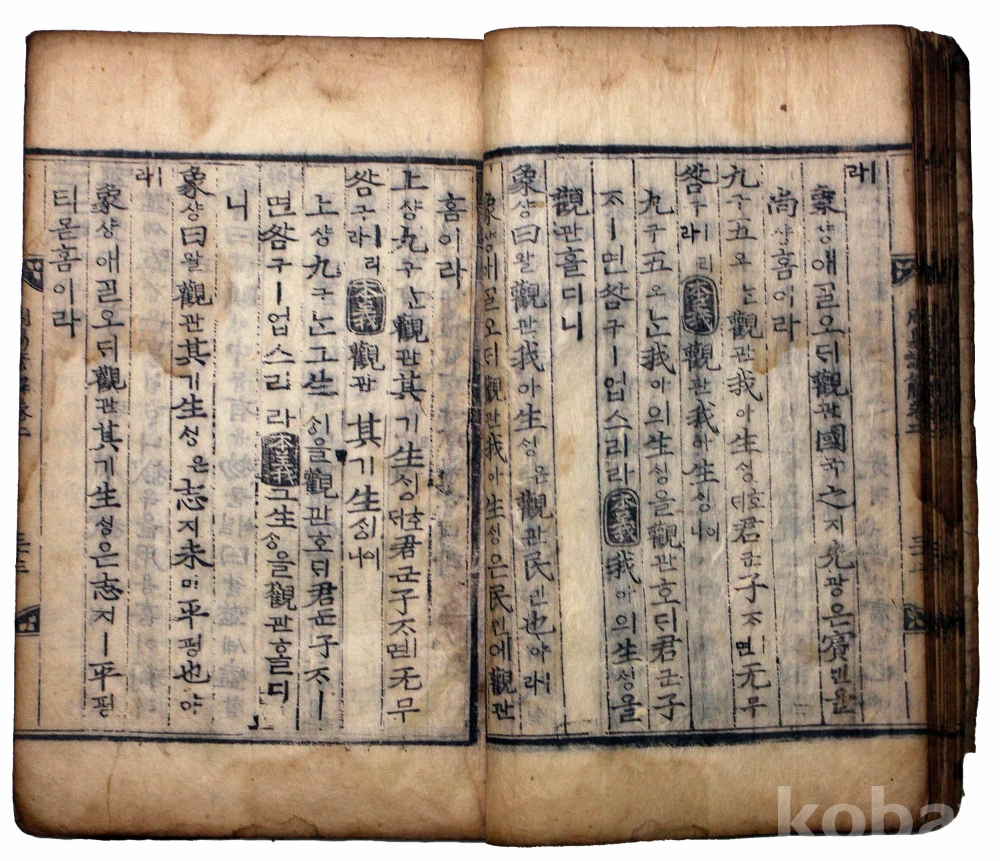 ㅣ라
象샹애ᄀᆞᆯ오ᄃᆡ觀관國국之지光광은賓빈을
尙샹홈이라
九구五오ᄂᆞᆫ觀관我아生ᄉᆡᆼ호ᄃᆡ君군子ᄌᆞㅣ면无무
咎구ㅣ리라本義觀관我아生ᄉᆡᆼ이니
九구五오ᄂᆞᆫ我아의生ᄉᆡᆼ을觀관호ᄃᆡ君군子
ᄌᆞㅣ면咎구ㅣ업스리라本義我아의生ᄉᆡᆼ을
觀관홀디니
象샹曰왈觀관我아生ᄉᆡᆼ은觀관民민也야ㅣ라
象샹애ᄀᆞᆯ오ᄃᆡ觀관我아生ᄉᆡᆼ은民민에觀관
홈이라
上샹九구ᄂᆞᆫ觀관其기生ᄉᆡᆼ호ᄃᆡ君군子ᄌᆞㅣ면无무
咎구ㅣ리라本義觀관其기生ᄉᆡᆼ이니
上샹九구ᄂᆞᆫ그生ᄉᆡᆼ을觀관호ᄃᆡ君군子ᄌᆞㅣ
면咎구ㅣ업스리라本義그生ᄉᆡᆼ을觀관홀디
니
象샹曰왈觀관其기生ᄉᆡᆼ은志지未미平평也야
ㅣ라
象샹애ᄀᆞᆯ오ᄃᆡ觀관其기生ᄉᆡᆼ은志지ㅣ平평
티몯홈이라
koba